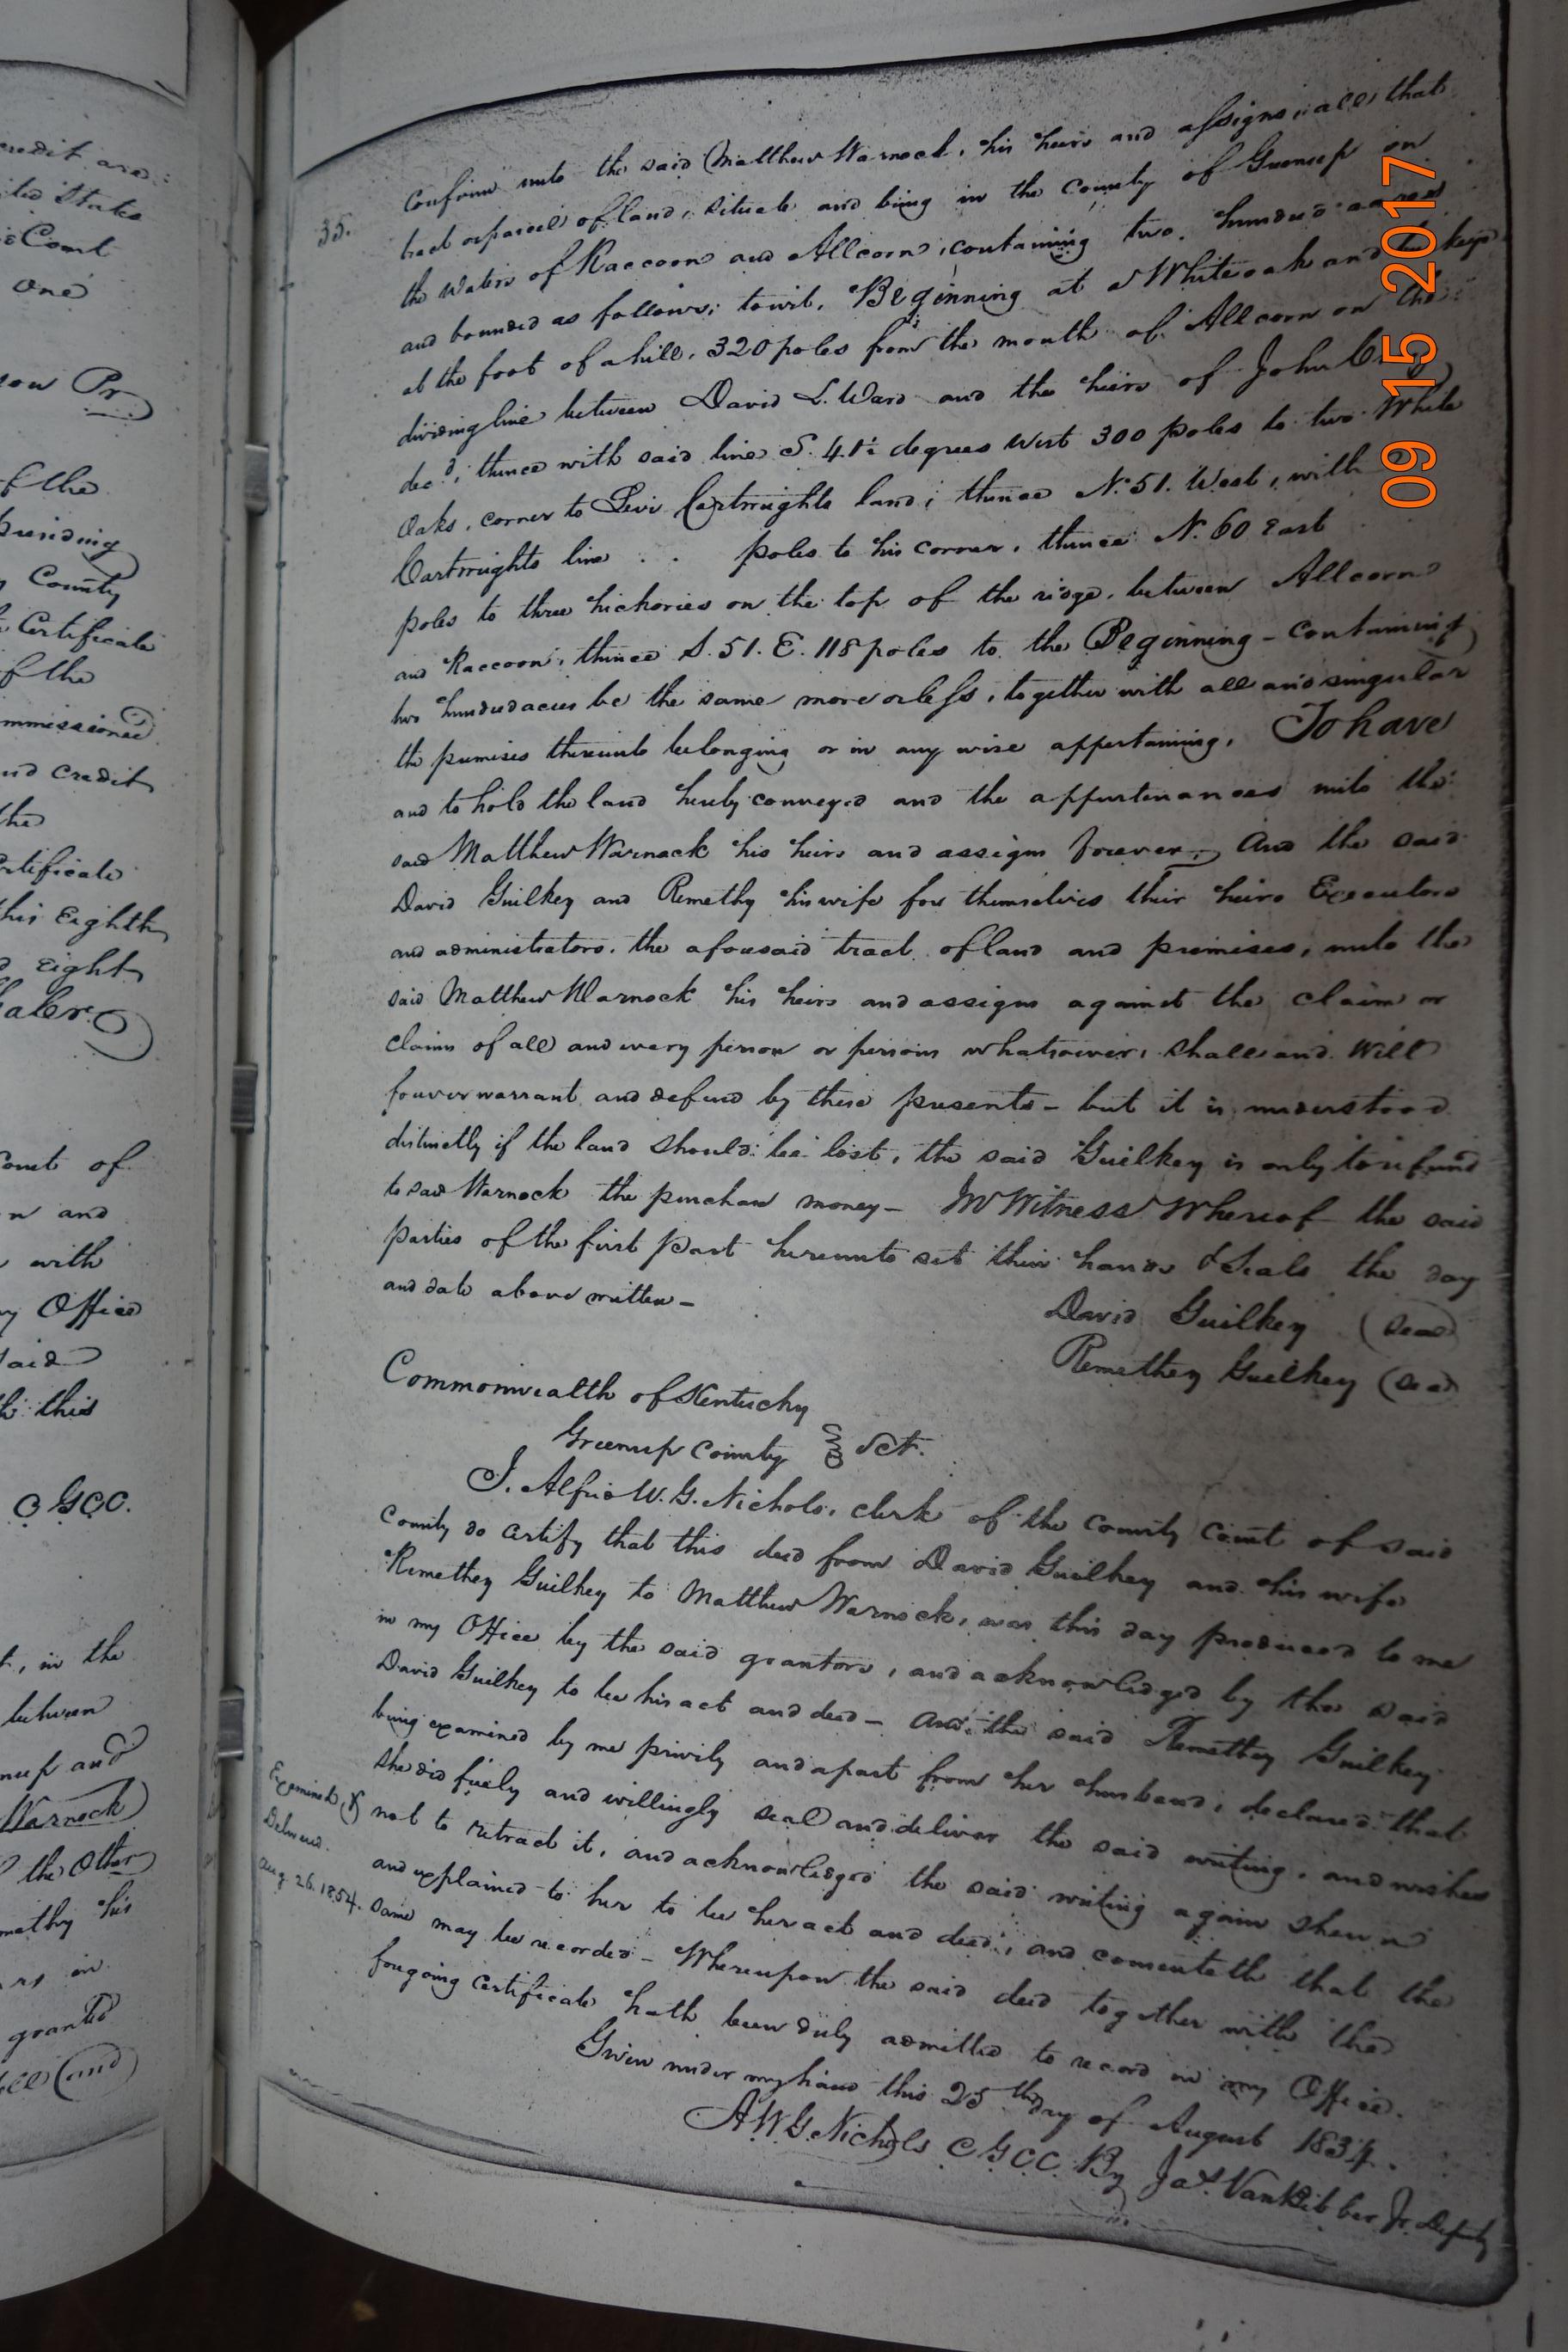 credit and
ited States
Court
one
Pr
f the
presiding
County
Certificate
of the
ommissioned
and credit
the
ertificate
this Eighth
Eight
G.C.C.
Court of
n and
with
my Office
said
this
t, in the
between
nup and
Warnock
the other
methy his
rs in
granted
35.
Confirm unto the said Matthew Warnock, his heirs and assigns, all that
tract or parcel of land, situate and being in the county of Greenup on
the waters of Raccoon and Allcorn, containing two hundred acres
and bounded as follows; towit, Beginning at a White oak and
at the foot of a hill, 320 poles from the mouth of Allcorn on the
dividing line between David L. Ward and the heirs of John
decd; thence with said line S. 41½ degrees West 300 poles to two White
Oaks, corner to Levi Cartwrights land; thence N. 51. West, with
Cartwrights line . . poles to his corner, thence N. 60 East
poles to three hickories on the top of the ridge, between Allcorn
and Raccoon, thence S. 51. E. 118 poles to the Beginning - containing
two hundred acres be the same more or less, together with all and singular
the premises thereunto belonging or in any wise appertaining, To have
and to hold the land hereby conveyed and the appurtenances unto the
said Matthew Warnock his heirs and assigns forever, And the said
David Guilkey and Remethy his wife for themselves their heirs Executors
and administrators, the aforesaid tract of land and premises, unto the
said Matthew Warnock his heirs and assigns against the claim or
claims of all and every person or persons whatsoever, shall and will
forever warrant and defend by these presents - but it is understood
distinctly if the land should be lost, the said Guilkey is only to refund
to said Warnock the purchase money - In Witness Whereof the said
parties of the first part hereunto set their hands & Seals the day
and date above written -
David Guilkey (Seal)
Remethey Guilkey (Seal)
Commonwealth of Kentucky
Greenup County Sct.
I. Alfred W. G. Nichols, clerk of the County Court of said
County do certify that this deed from David Guilkey and his wife
Remethey Guilkey to Matthew Warnock, was this day produced to me
in my Office by the said grantors, and acknowledged by the said
David Guilkey to be his act and deed - And the said Remethey Guilkey
being examined by me privily and apart from her husband, declared that
she did freely and willingly seal and deliver the said writing, and wishes
not to retract it, and acknowledged the said writing again shewn
and explained to her to be her act and deed, and consenteth that the
same may be recorded - Whereupon the said deed together with the
foregoing Certificate hath been duly admitted to record in my Office.
Given under my hand this 25th day of August 1834.
A W G Nichols C G C C By Jas. VanBibber Jr. Deputy
Examined &
Delivered.
Aug. 26. 1854.
09 15 2017